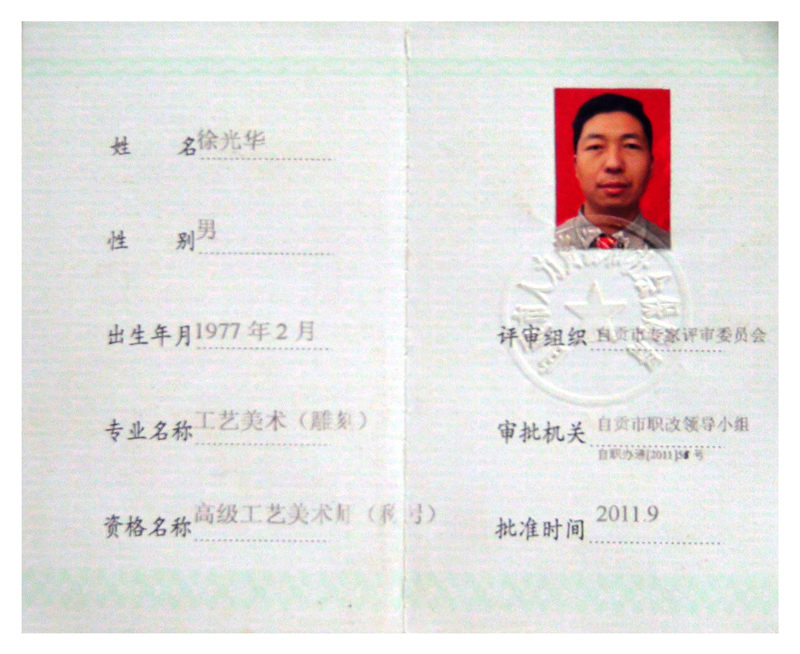 姓 名 徐光华
性 别 男
出生年月 1977年2月
专业名称 工艺美术（雕刻）
资格名称 高级工艺美术师（称号）
评审组织 自贡市专家评审委员会
审批机关 自贡市职改领导小组
自职办通[2011]58号
批准时间 2011.9